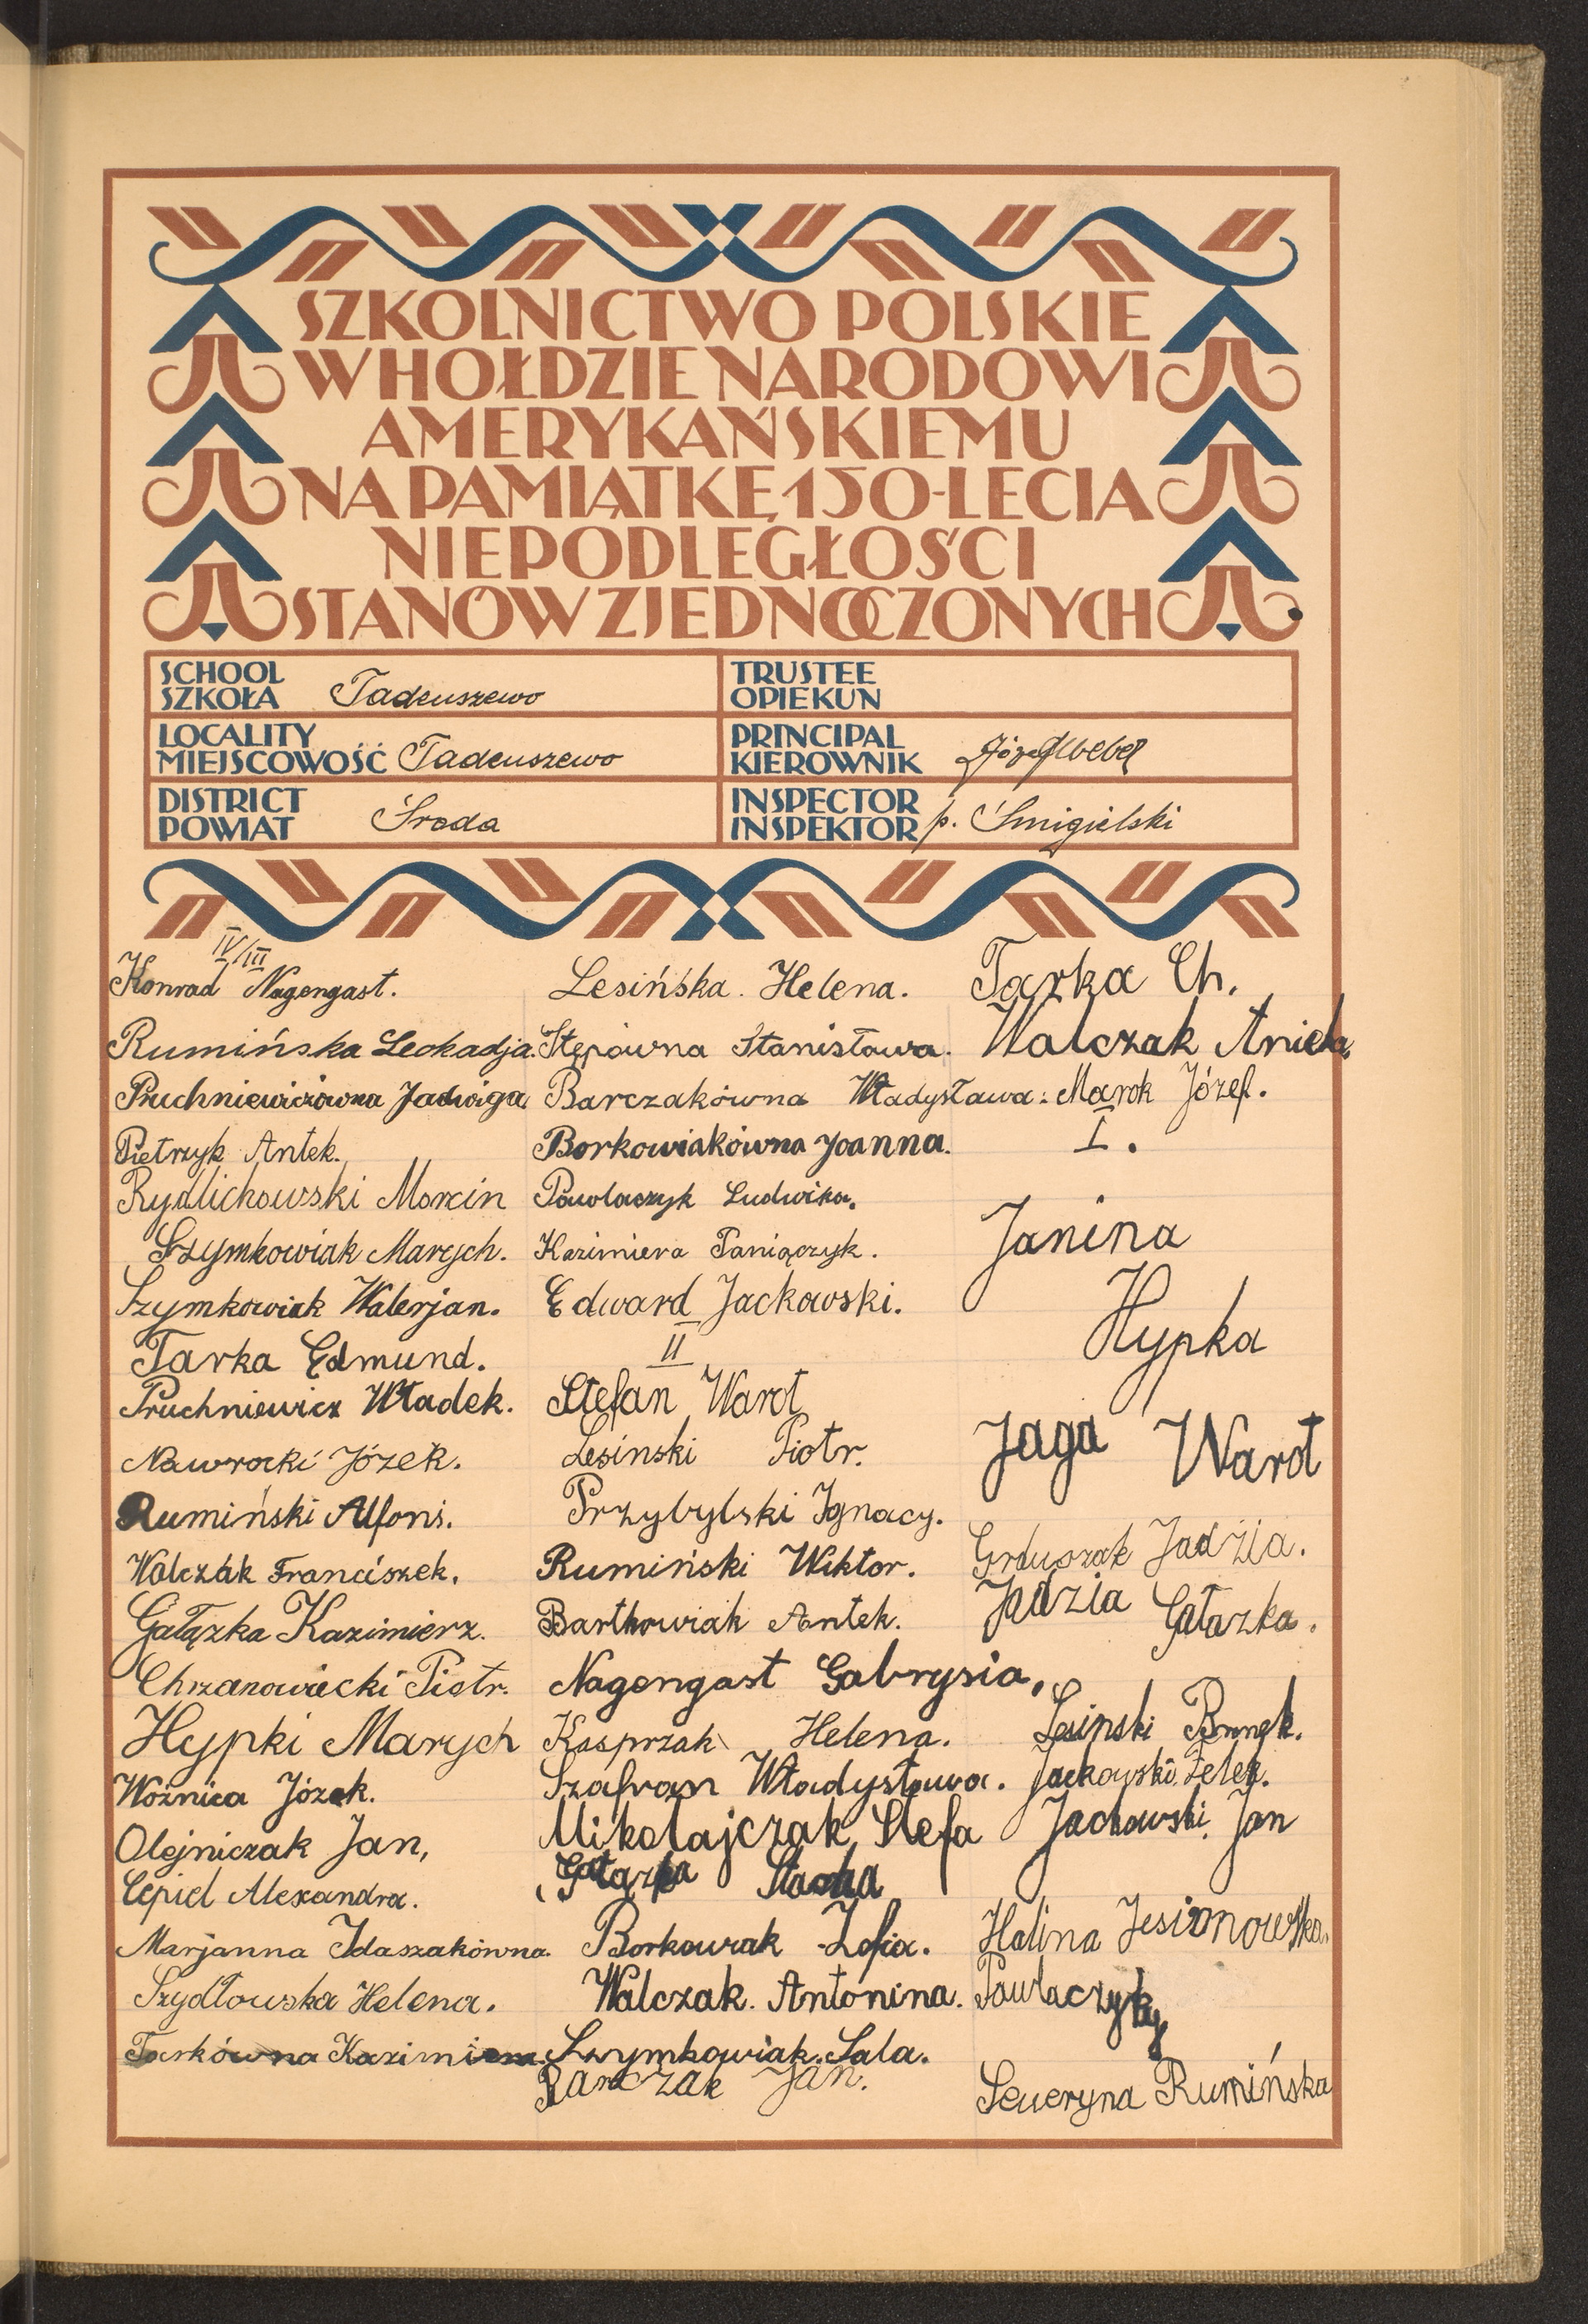 SZKOLNICTWO POLSKIE
W HOŁDZIE NARODOWI
AMERYKAŃSKIEMU
NA PAMIĄTKĘ 150-LECIA
NIEPODLEGŁOŚCI
STANÓW ZJEDNOCZONYCH
SCHOOL
SZKOŁA Tadeuszewo
TRUSTEE
OPIEKUN
LOCALITY
MIEJSCOWOŚĆ Tadeuszewo
PRINCIPAL
KIEROWNIK Józef Webel
DISTRICT
POWIAT Środa
INSPECTOR
INSPEKTOR p. Śmigielski
IV/III
Konrad Nagengast.
Rumińska Leokadja.
Pruchniewiczówna Jadwiga.
Pietrzyk Antek.
Rydlichowski Marcin
Szymkowiak Marych.
Szymkowiak Walerjan.
Tarka Edmund.
Pruchniewicz Władek.
Nawrocki Józek.
Rumiński Alfons.
Walczak Franciszek.
Gałązka Kazimierz.
Chrzanowiecki Piotr.
Hypki Marych
Woźnica Józek.
Olejniczak Jan,
Cepiel Alexandra.
Marjanna Idaszakówna.
Szydłowska Helena.
Tarkówna Kazimiera.
Lesińska. Helena.
Stępówna Stanisława.
Barczakówna Władysława.
Borkowiakówna Joanna.
Pawlaczyk Ludwika.
Kazimiera Paniączyk.
Edward Jackowski.
II
Stefan Warot
Lesinski Piotr.
Przybylski Ignacy.
Rumiński Wiktor.
Bartkowiak Antek.
Nagengast Gabrysia.
Kasprzak Helena.
Szafran Władysława.
Mikołajczak Stefa
Gałązka Stacha
Borkowiak Zofia.
Walczak. Antonina.
Szymkowiak. Sala.
Banczak Jan.
Tarka Ch.
Walczak Aniela.
Marok Józef.
I.
Janina
Hypka
Jaga Warot
Jadzia.
Jadzia Gałazka.
Lesinski
Jackowski Felek.
Jackowski Jan
Halina Jesionowska.
Pawlaczyk
Seweryna Rumińska